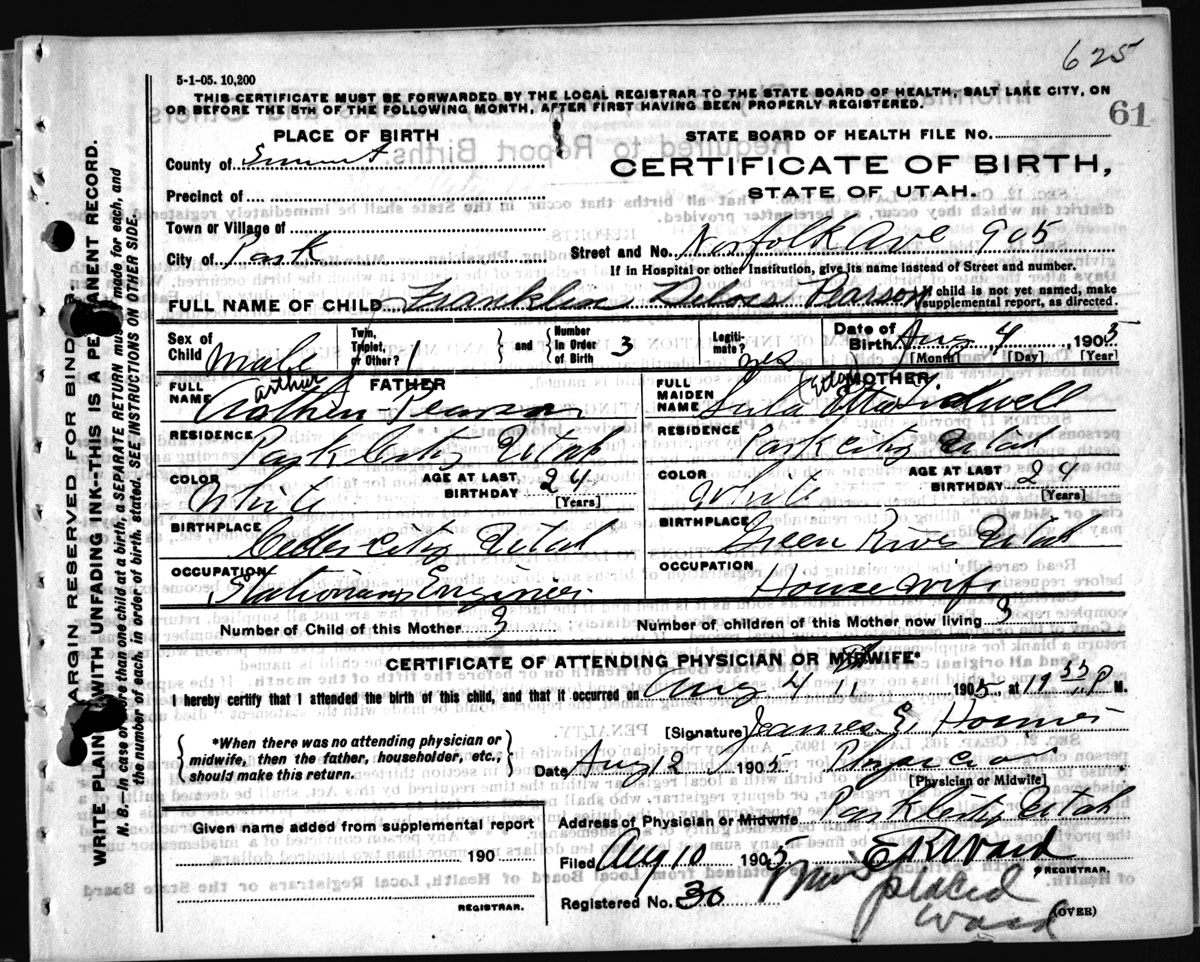 625
5-1-05. 10,200
THIS CERTIFICATE MUST BE FORWARDED BY THE LOCAL REGISTRAR TO THE STATE BOARD OF HEALTH, SALT LAKE CITY, ON
OR BEFORE THE 5TH OF THE FOLLOWING MONTH, AFTER FIRST HAVING BEEN PROPERLY REGISTERED.
61
PLACE OF BIRTH
STATE BOARD OF HEALTH FILE NO.
County of Summit
CERTIFICATE OF BIRTH,
Precinct of
STATE OF UTAH.
Town or Village of
City of Park
Street and No. Norfolk Ave 905
If in Hospital or other Institution, give its name instead of Street and number.
FULL NAME OF CHILD Franklin Delois Pearson
If child is not yet named, make supplemental report, as directed.
Sex of Child Male
Twin, Triplet, or Other? 1
and
Number in Order of Birth 3
Legitimate? yes
Date of Birth Aug 4 1905
[Month] [Day] [Year]
FATHER
FULL NAME Arthur Pearson
MOTHER
FULL MAIDEN NAME Lula Etta Tidwell
RESIDENCE Park City Utah
RESIDENCE Park City Utah
COLOR White AGE AT LAST BIRTHDAY 24 [Years]
COLOR White AGE AT LAST BIRTHDAY 24 [Years]
BIRTHPLACE Ceder City Utah
BIRTHPLACE Green River Utah
OCCUPATION Stationary Engineer
OCCUPATION House wife
Number of Child of this Mother 3
Number of children of this Mother now living 3
CERTIFICATE OF ATTENDING PHYSICIAN OR MIDWIFE*
I hereby certify that I attended the birth of this child, and that it occurred on Aug 4 1905, at P M.
*When there was no attending physician or midwife, then the father, householder, etc., should make this return.
[Signature]
Date Aug 12 1905
Physician
[Physician or Midwife]
Address of Physician or Midwife Park City Utah
Given name added from supplemental report
190
REGISTRAR.
Filed Aug 10 1905 Ward
REGISTRAR.
Registered No. 30
placed
Ward
(OVER)
MARGIN RESERVED FOR BINDER.
WRITE PLAINLY WITH UNFADING INK--THIS IS A PERMANENT RECORD.
N. B.--In case of more than one child at a birth, a SEPARATE RETURN must be made for each, and
the number of each, in order of birth, stated. SEE INSTRUCTIONS ON OTHER SIDE.